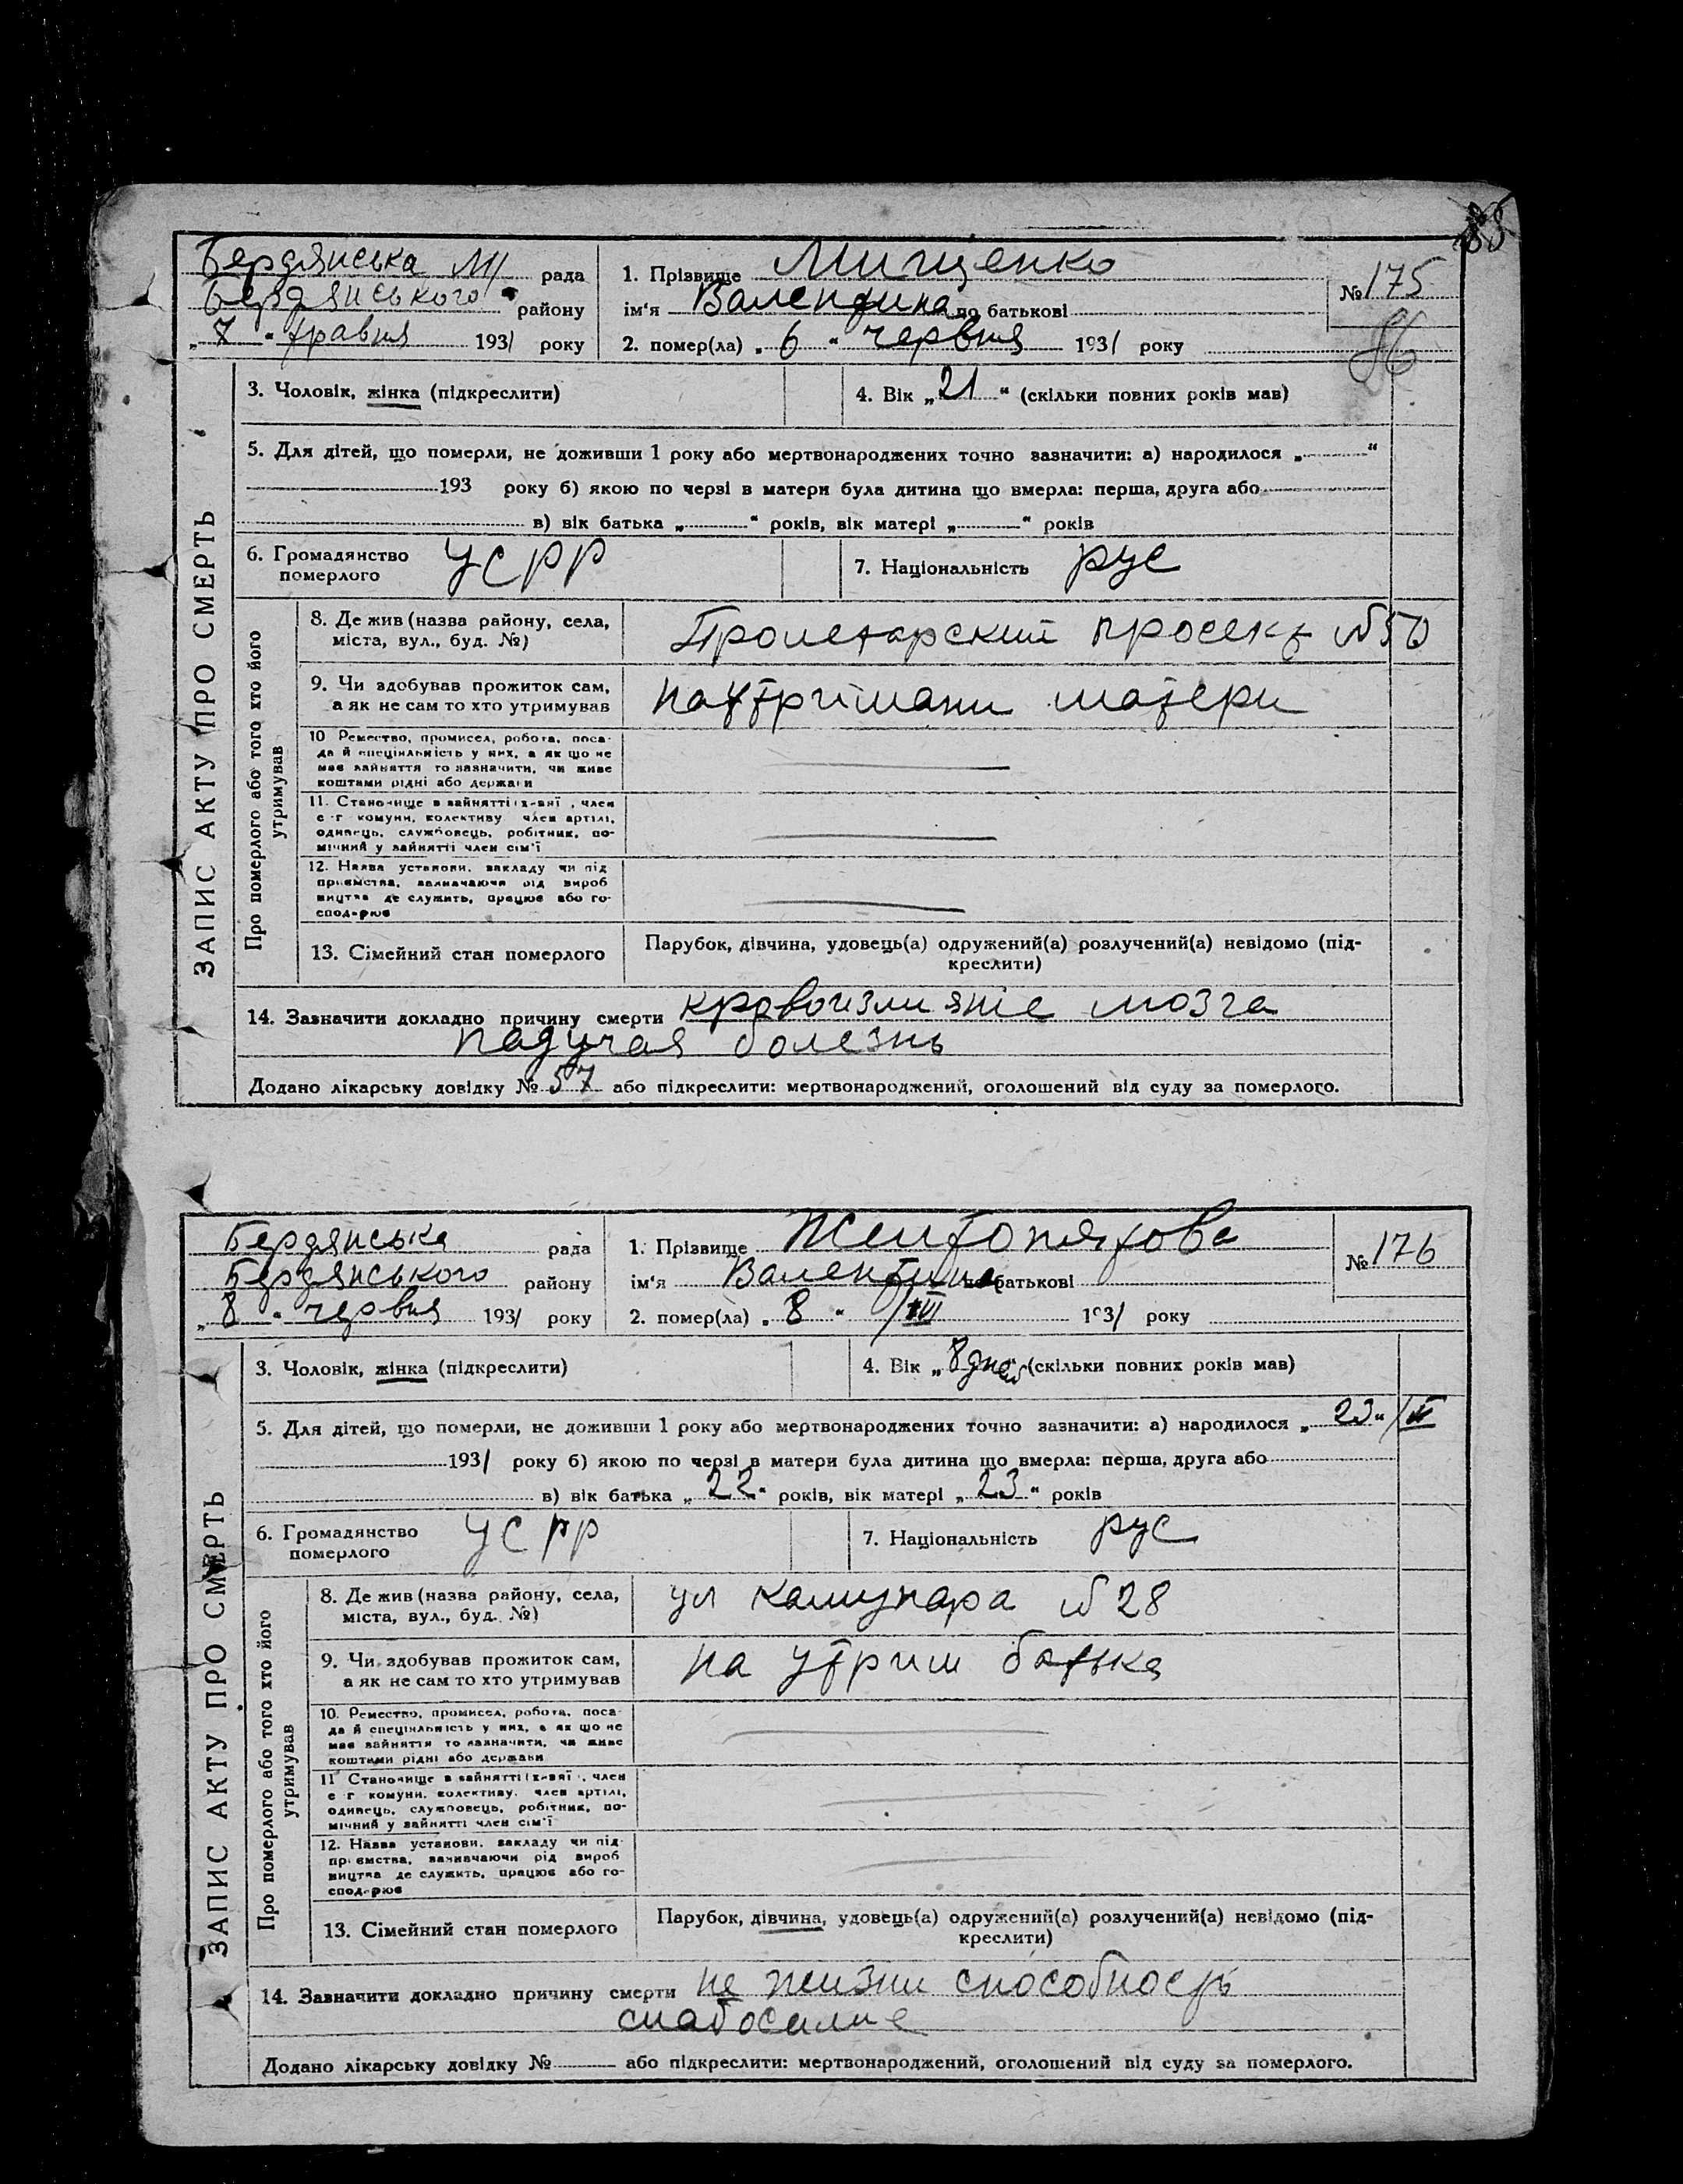 85
Бердянська МР рада
Бердянського району
„7“ травня 1931 року
1. Прізвище Мищенко
ім'я Валентина по батькові
2. помер(ла) „6“ червня 1931 року
№ 175
86
ЗАПИС АКТУ ПРО СМЕРТЬ
3. Чоловік, жінка (підкреслити)
4. Вік „21“ (скільки повних років мав)
5. Для дітей, що померли, не доживши 1 року або мертвонароджених точно зазначити: а) народилося „ “
193 року б) якою по черзі в матери була дитина що вмерла: перша, друга або
в) вік батька „ “ років, вік матері „ “ років
6. Громадянство
померлого
УСРР
7. Національність рус
Про померлого або того хто його
утримував
8. Де жив (назва району, села,
міста, вул., буд. №)
Пролетарский просект №50
9. Чи здобував прожиток сам,
а як не сам то хто утримував
на утримани матери
10 Ремество, промисел, робота, поса-
да й спеціяльність у них, а як що не
має зайняття то зазначити, чи живе
коштами рідні або держави
11. Становище в зайнятті (х-вяї , член
с-г комуни, колективу член артілі,
одинець, службовець, робітник, по-
мічний у зайнятті член сім'ї
12. Назва установи, закладу чи під
приємства, зазначаючи рід вироб
ництва де служить, працює або го-
сподарює
13. Сімейний стан померлого
Парубок, дівчина, удовець(а) одружений(а) розлучений(а) невідомо (під-
креслити)
14. Зазначити докладно причину смерти кровоизлияние мозга
падучая болезнь
Додано лікарську довідку № 57 або підкреслити: мертвонароджений, оголошений від суду за померлого.
Бердянська рада
Бердянського району
„8“ червня 1931 року
1. Прізвище Желтоляхова
ім'я Валентина по батькові
2. помер(ла) „8“ /III 1931 року
№ 176
ЗАПИС АКТУ ПРО СМЕРТЬ
3. Чоловік, жінка (підкреслити)
4. Вік „8 дней“ (скільки повних років мав)
5. Для дітей, що померли, не доживши 1 року або мертвонароджених точно зазначити: а) народилося „23“/II
1931 року б) якою по черзі в матери була дитина що вмерла: перша, друга або
в) вік батька „22“ років, вік матері „23“ років
6. Громадянство
померлого
УСРР
7. Національність рус
Про померлого або того хто його
утримував
8. Де жив (назва району, села,
міста, вул., буд. №)
ул камунара №28
9. Чи здобував прожиток сам,
а як не сам то хто утримував
на утрим батька
10. Ремество, промисел, робота, поса-
да й спеціяльність у них, а як що не
має зайняття то зазначити, чи живе
коштами рідні або держави
11 Становище в зайнятті (х-вяї , член
с г комуни, колективу, член артілі,
одинець, службовець, робітник, по-
мічний у зайнятті член сім'ї
12. Назва установи, закладу чи під-
приємства, зазначаючи рід вироб
ництва де служить, працює або го-
сподарює
13. Сімейний стан померлого
Парубок, дівчина, удовець(а) одружений(а) розлучений(а) невідомо (під-
креслити)
14. Зазначити докладно причину смерти не жизни способность
слабосилие
Додано лікарську довідку № або підкреслити: мертвонароджений, оголошений від суду за померлого.